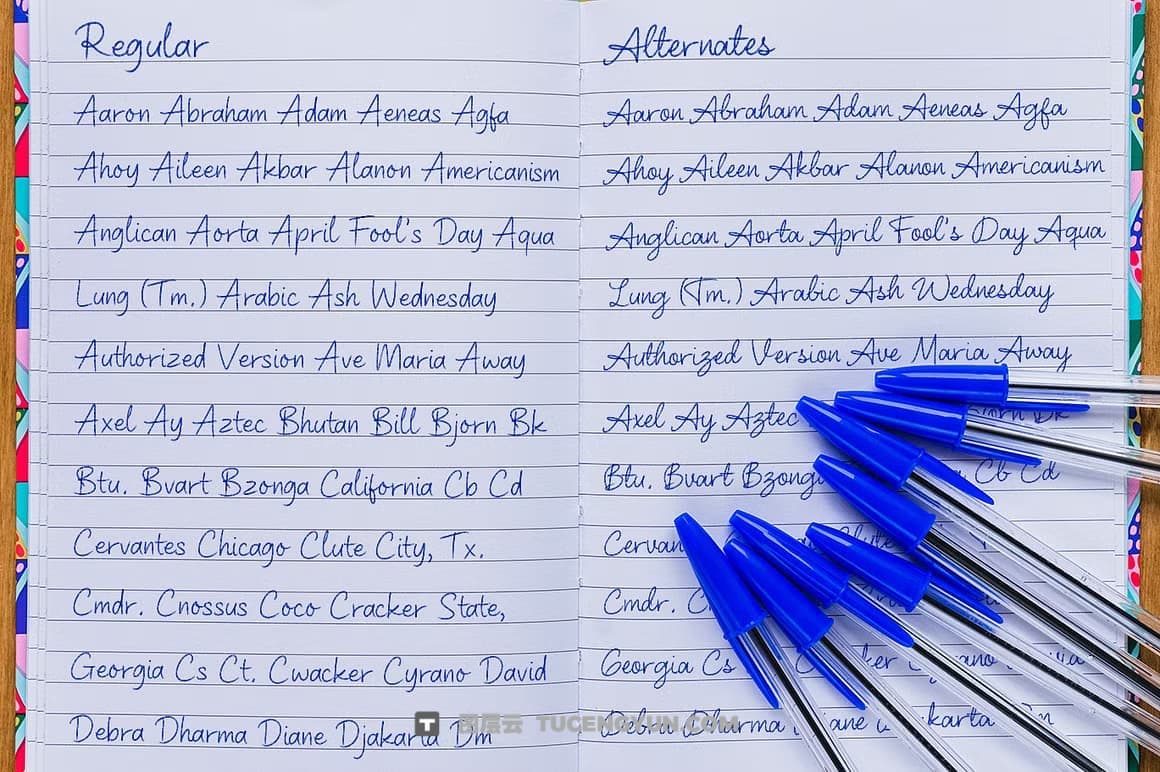 Regular
Aaron Abraham Adam Aeneas Agfa
Ahoy Aileen Akbar Alanon Americanism
Anglican Aorta April Fool's Day Aqua
Lung (Tm.) Arabic Ash Wednesday
Authorized Version Ave Maria Away
Axel Ay Aztec Bhutan Bill Bjorn Bk
Btu. Bvart Bzonga California Cb Cd
Cervantes Chicago Clute City, Tx.
Cmdr. Cnossus Coco Cracker State,
Georgia Cs Ct. Cwacker Cyrano David
Debra Dharma Diane Djakarta Dm
Alternates
Aaron Abraham Adam Aeneas Agfa
Ahoy Aileen Akbar Alanon Americanism
Anglican Aorta April Fool's Day Aqua
Lung (Tm.) Arabic Ash Wednesday
Authorized Version Ave Maria Away
Axel Ay Aztec Bk
Btu. Bvart Cb Cd
Cmdr.
Georgia Cs
Debra Dharma
T 图层云 TUCENGYUN.COM